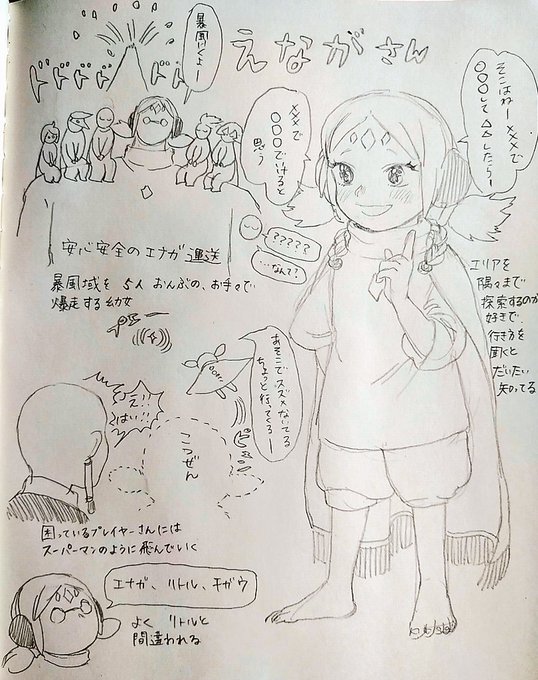 えながさん
暴風いくよー
ドドドドドド
そこはねー×××で
○○○して△△したらー
×××で
○○○でいけると
思う
安心安全のエナガ運送
?????
…なんて?
暴風域を5人おんぶの、お手々で
爆走する幼女
エリアを
隅々まで
探索するのが
好きで
行き方を
聞くと
だいたい
知ってる
あそこでスズメないてる
ちょっと行ってくるー
え!!
はい!!
こつぜん
ビュン
困っているプレイヤーさんには
スーパーマンのように飛んでいく
エナガ、リトル、チガウ
よくリトルと
間違われる